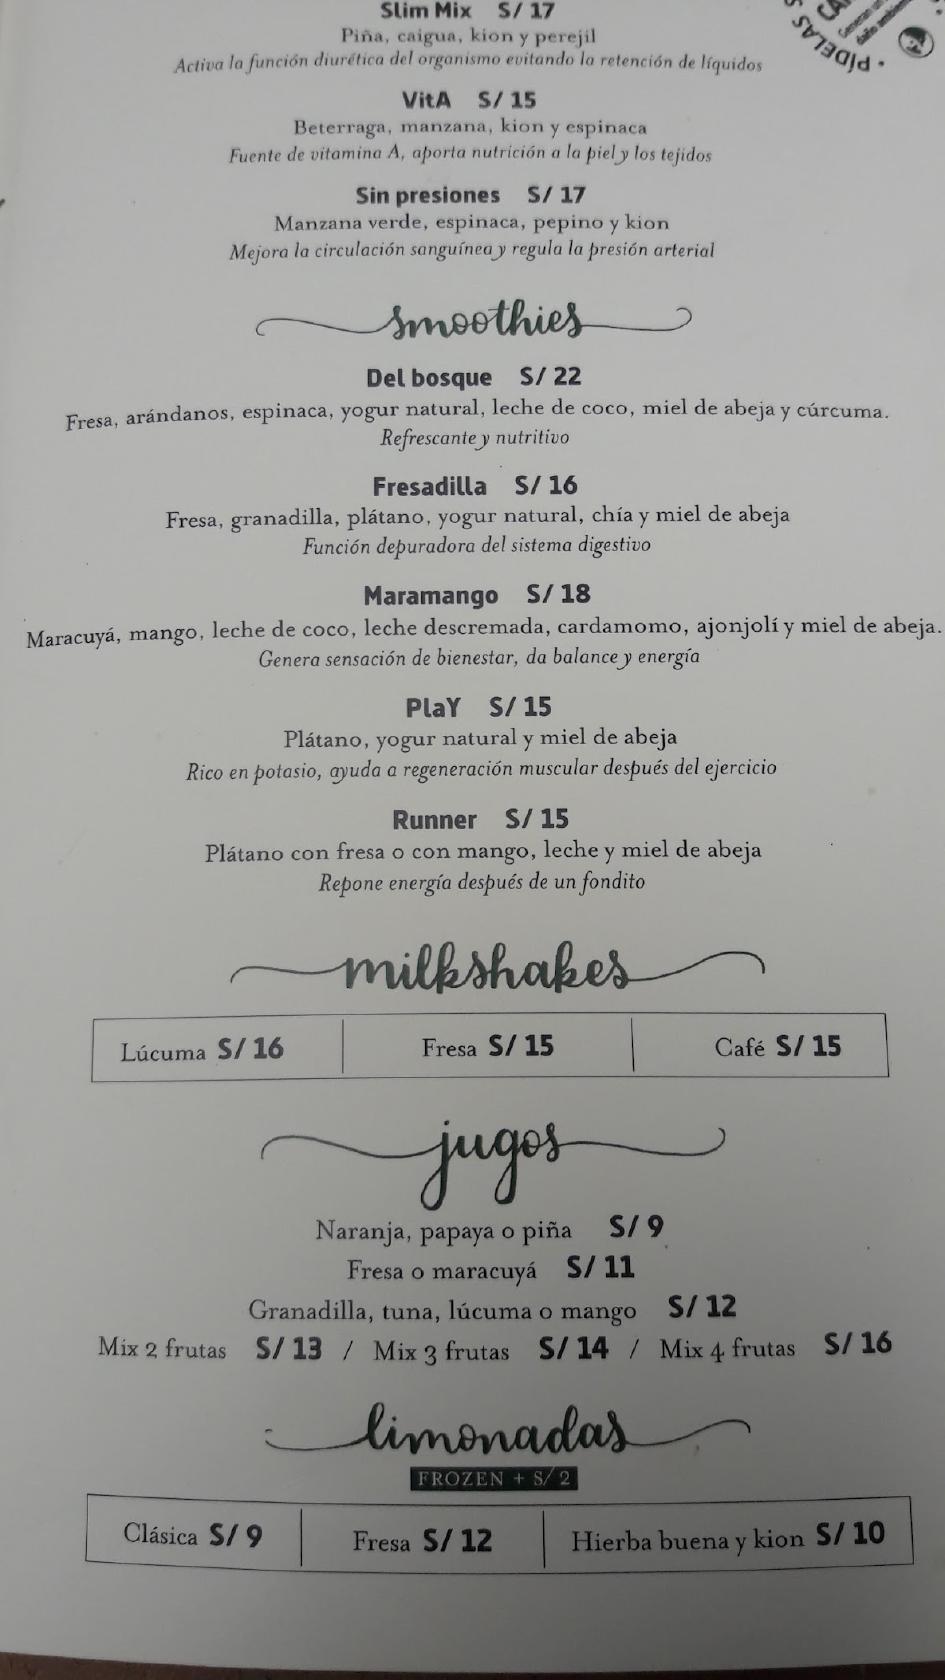 Slim Mix S/ 17
Piña, caigua, kion y perejil
Activa la función diurética del organismo evitando la retención de líquidos
PÍDELAS
VitA S/ 15
Beterraga, manzana, kion y espinaca
Fuente de vitamina A, aporta nutrición a la piel y los tejidos
Sin presiones S/ 17
Manzana verde, espinaca, pepino y kion
Mejora la circulación sanguínea y regula la presión arterial
smoothies
Del bosque S/ 22
Fresa, arándanos, espinaca, yogur natural, leche de coco, miel de abeja y cúrcuma.
Refrescante y nutritivo
Fresadilla S/ 16
Fresa, granadilla, plátano, yogur natural, chía y miel de abeja
Función depuradora del sistema digestivo
Maramango S/ 18
Maracuyá, mango, leche de coco, leche descremada, cardamomo, ajonjolí y miel de abeja.
Genera sensación de bienestar, da balance y energía
PlaY S/ 15
Plátano, yogur natural y miel de abeja
Rico en potasio, ayuda a regeneración muscular después del ejercicio
Runner S/ 15
Plátano con fresa o con mango, leche y miel de abeja
Repone energía después de un fondito
milkshakes
Lúcuma S/ 16 Fresa S/ 15 Café S/ 15
jugos
Naranja, papaya o piña S/ 9
Fresa o maracuyá S/ 11
Granadilla, tuna, lúcuma o mango S/ 12
Mix 2 frutas S/ 13 / Mix 3 frutas S/ 14 / Mix 4 frutas S/ 16
limonadas
FROZEN + S/ 2
Clásica S/ 9 Fresa S/ 12 Hierba buena y kion S/ 10